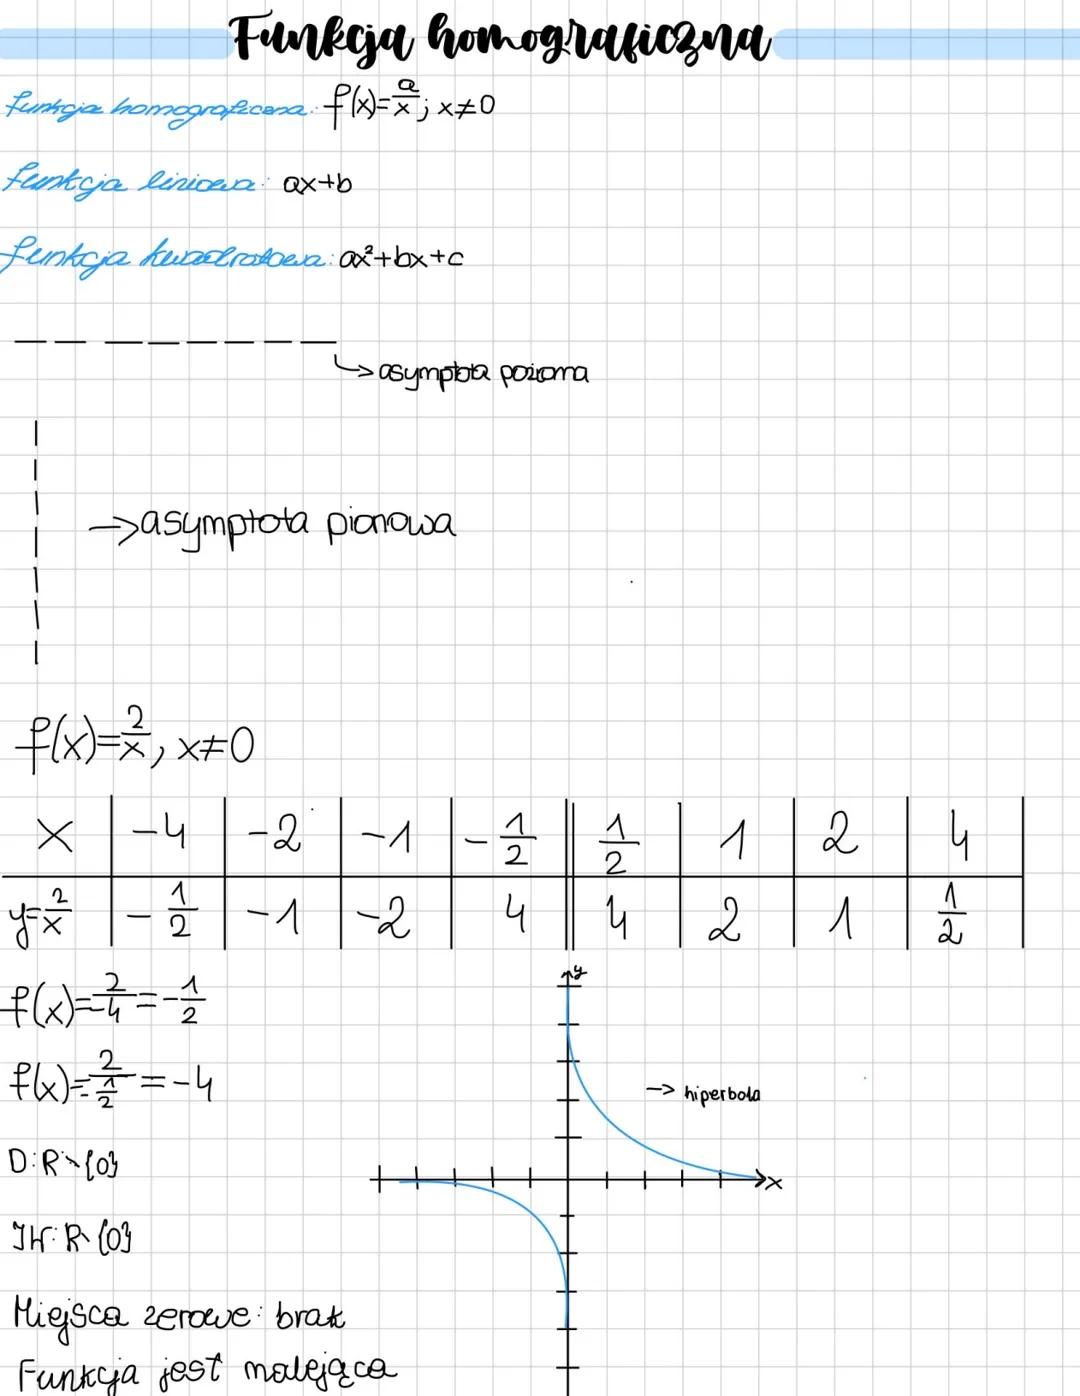 Funkcja homograficzna
funkcja homograficzna: f(x)=a/x; x≠0
funkcja liniowa: ax+b
funkcja kwadratowa: ax²+bx+c
→ asymptota pozioma
→ asymptota pionowa
f(x)=2/x, x≠0
x | -4 | -2 | -1 | -1/2 || 1/2 | 1 | 2 | 4
y=2/x | -1/2 | -1 | -2 | 4 || 4 | 2 | 1 | 1/2
f(x)=2/-4=-1/2
y
f(x)=2/-1/2=-4
→ hiperbola
D:R\{0}
x
ZW:R\{0}
Miejsca zerowe: brak
Funkcja jest malejąca